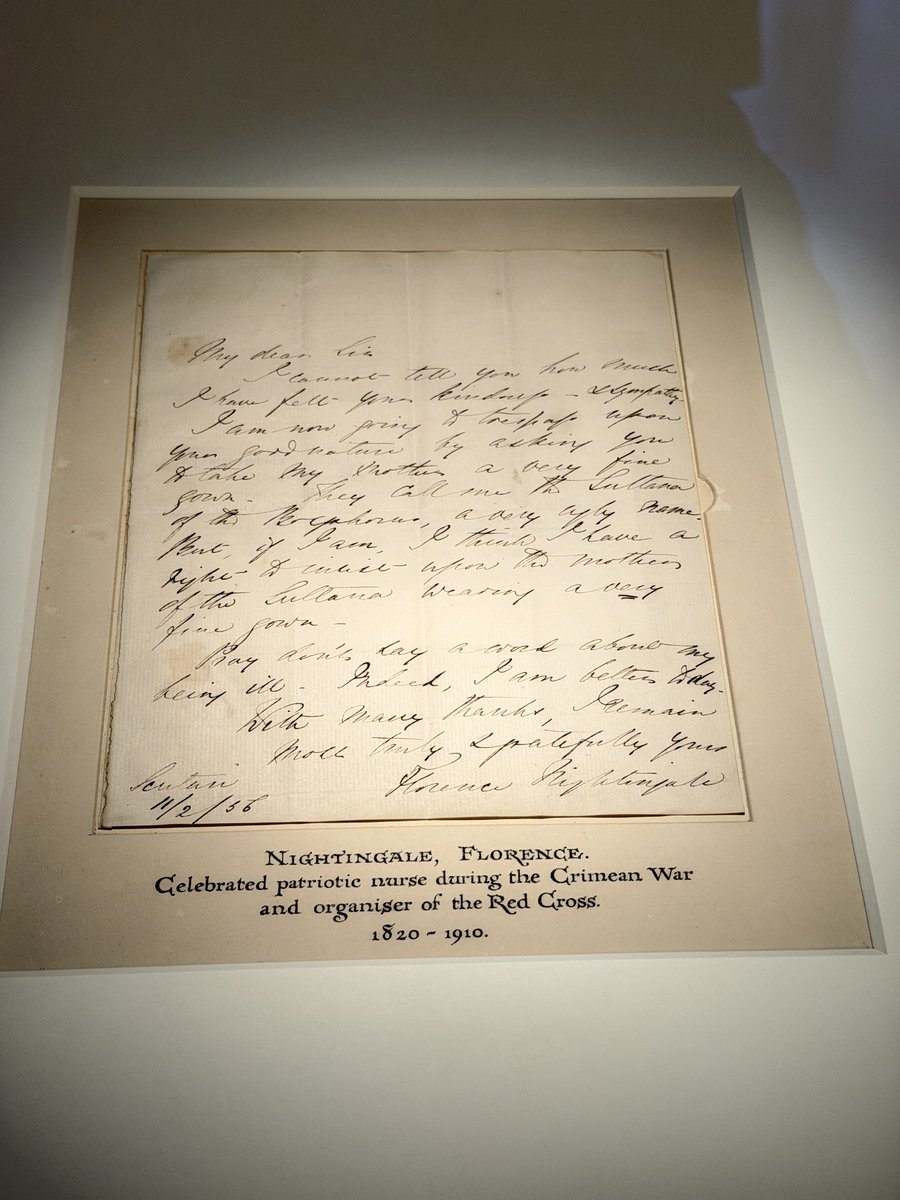 My dear Sir
I cannot tell you how much
I have felt your kindness - & sympathy
I am now going to trespass upon
your good nature by asking you
to take my mother a very fine
gown - They call me the Sultana
of the Bosphorus, a very ugly name.
But, if I am, I think I have a
right to insist upon the mother
of the Sultana wearing a very
fine gown -
Pray don't say a word about my
being ill - Indeed, I am better today.
With many thanks, I remain
most truly & gratefully yours
Florence Nightingale
Scutari
11/2/56
NIGHTINGALE, FLORENCE.
Celebrated patriotic nurse during the Crimean War
and organiser of the Red Cross.
1820 - 1910.